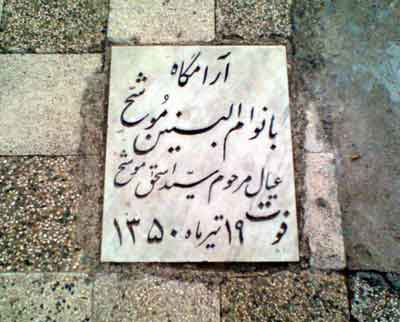 آرامگاه
بانو ام البنین موشح
عیال مرحوم سید اسحق موشح
فوت ۱۹ تیر ماه ۱۳۵۰